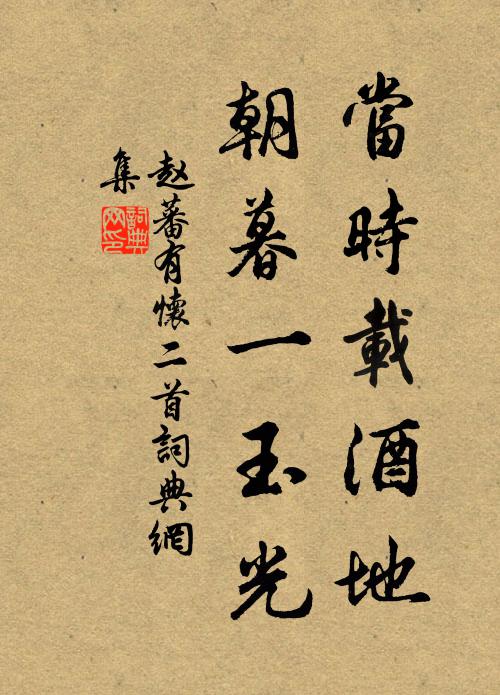 當時載酒地
朝暮一玉光
赵蕃有懷二首詞典網
集
詞典网印